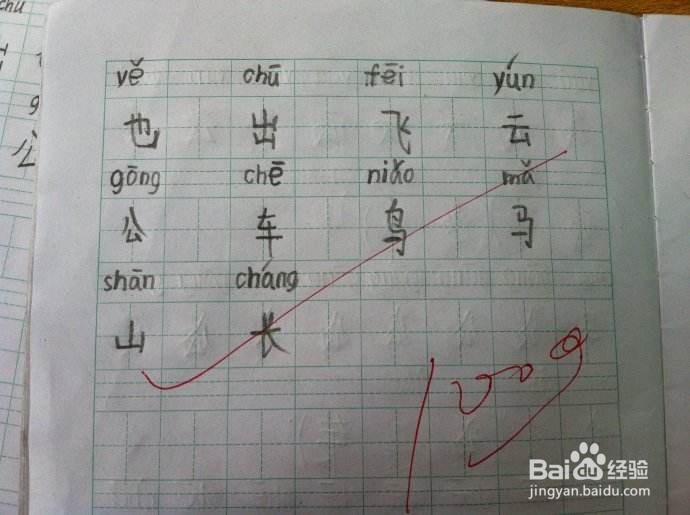 yě chū fēi yún
也 出 飞 云
gōng chē niǎo mǎ
公 车 鸟 马
shān cháng
山 长
100
Baidu 经验
jingyan.baidu.com